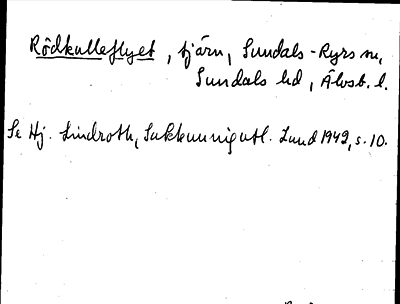 Rödkulleflyet, tjärn, Sundals-Ryrs sn,
Sundals hd, Älvsb. l.
Se Hj. Lindroth, Lund 1942, s. 10.